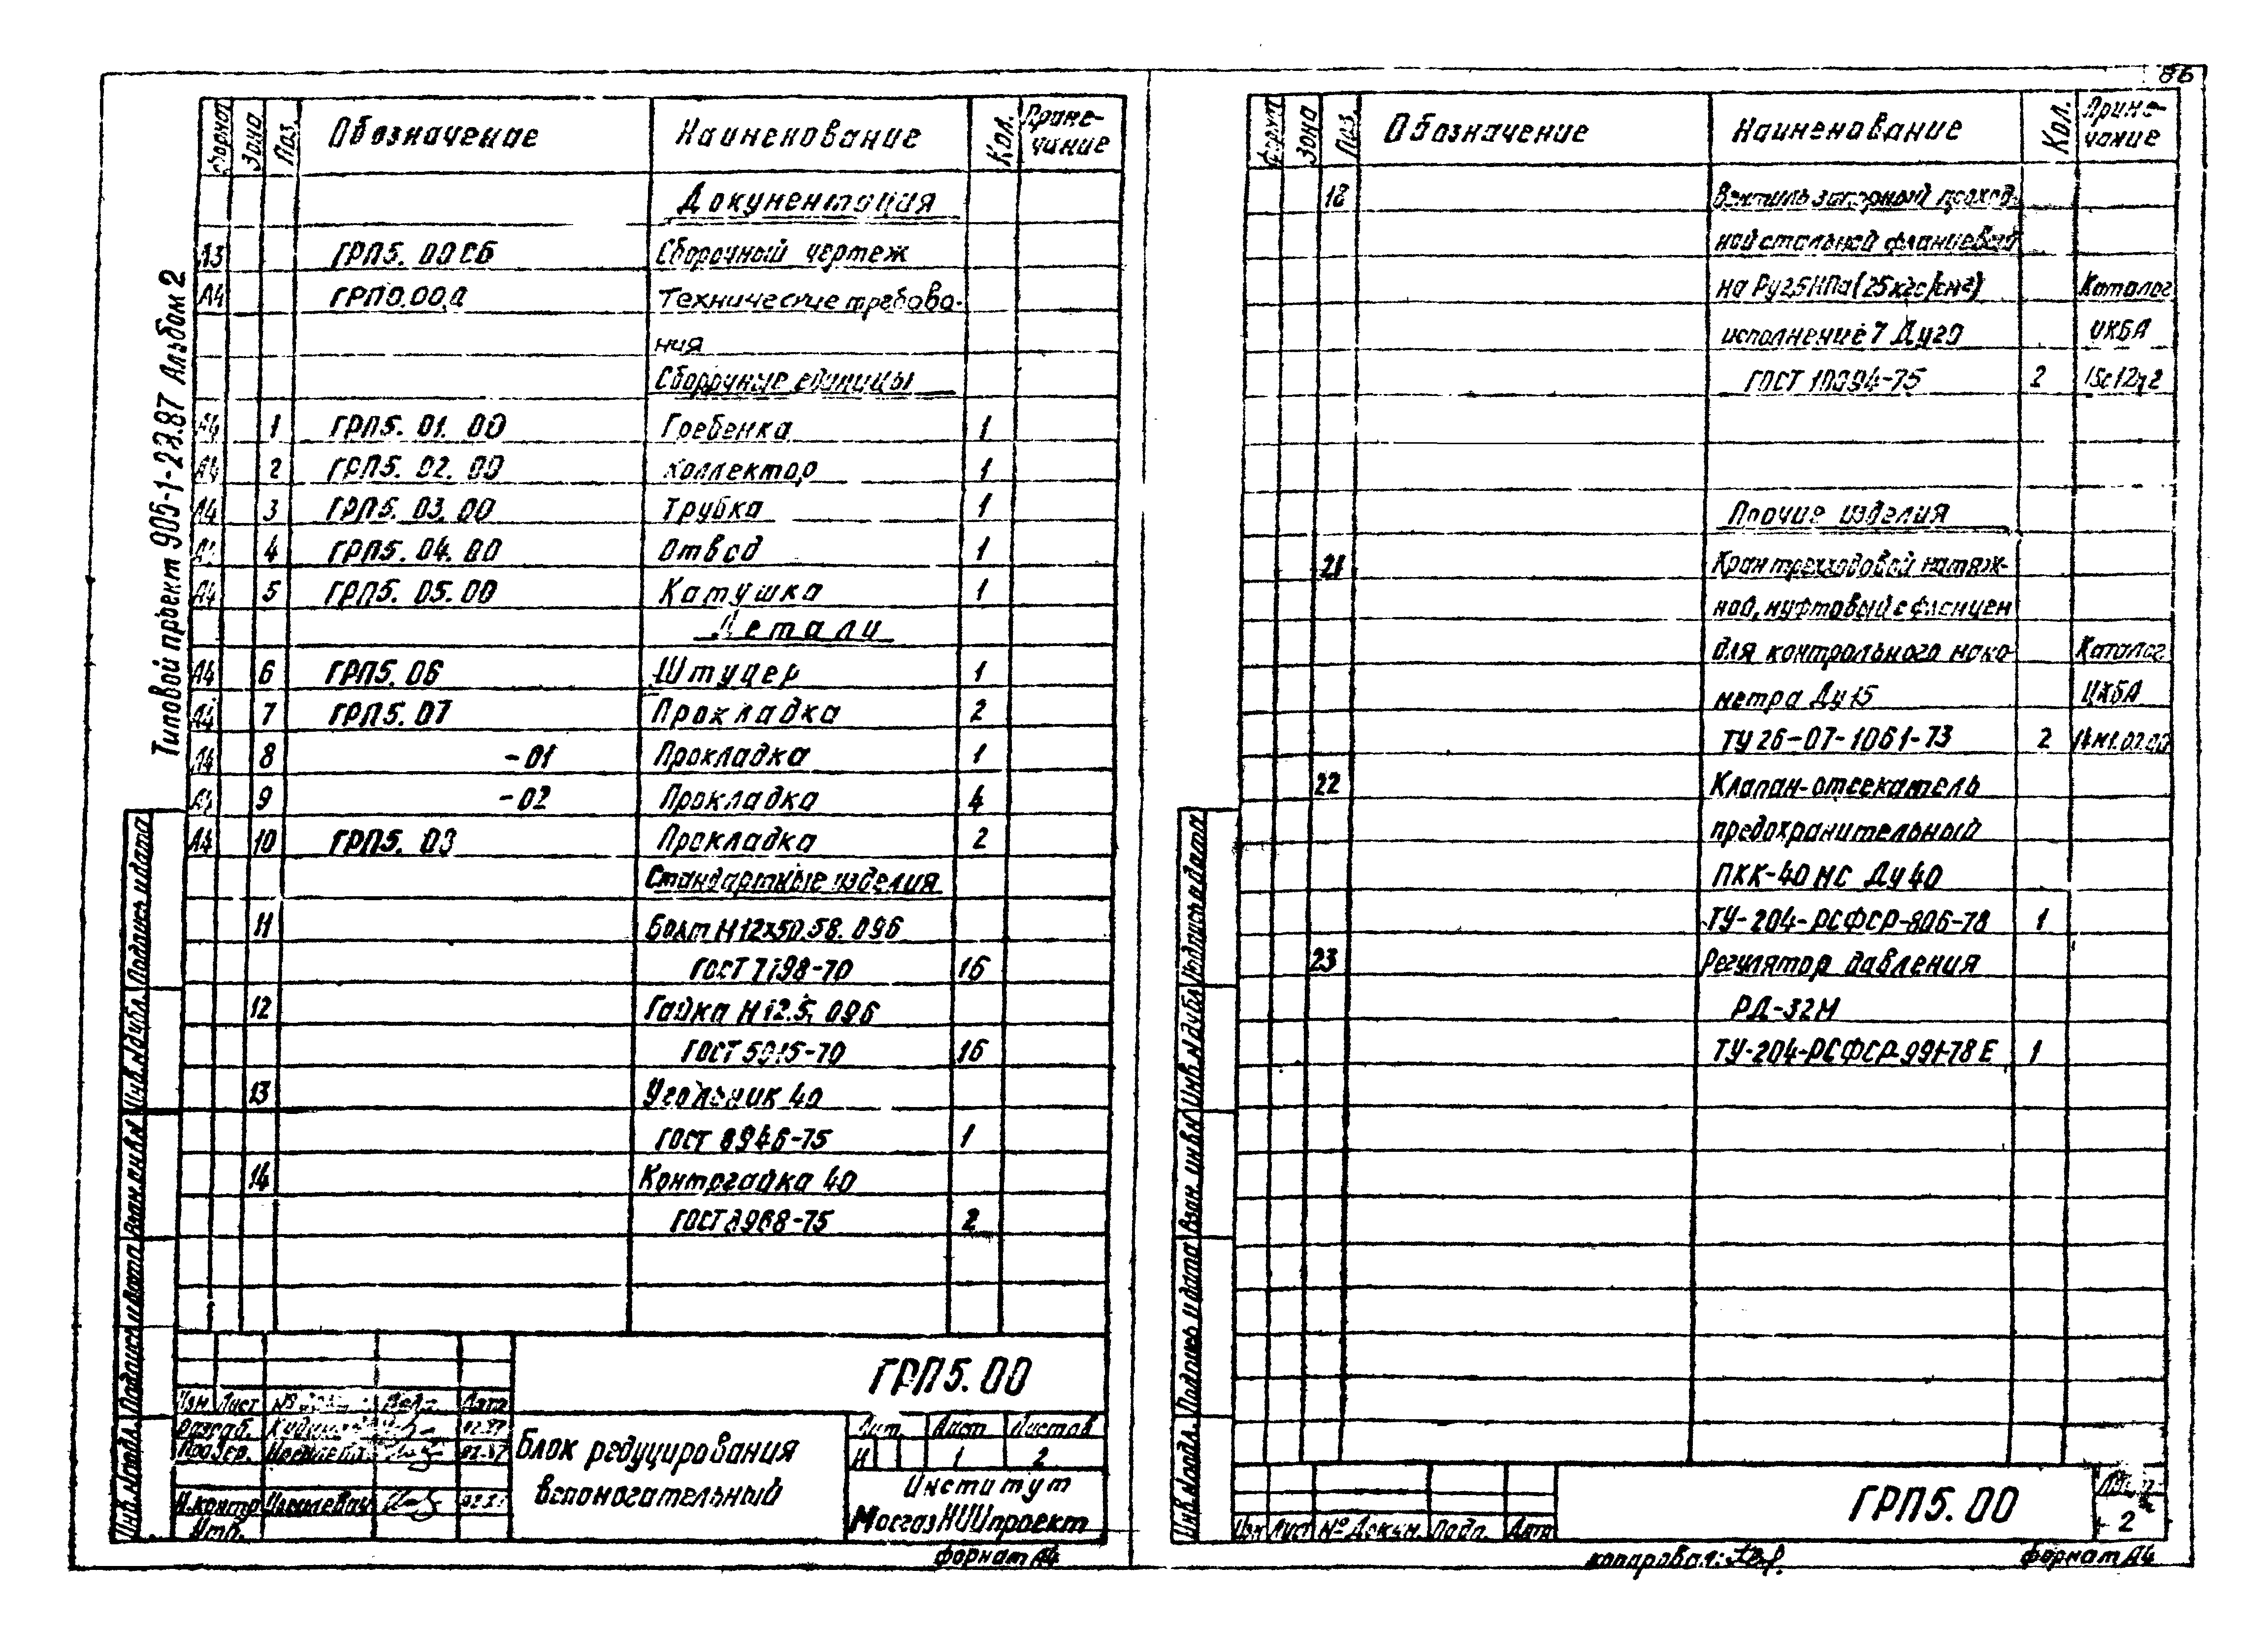 86
Типовой проект 905-1-27.87 Альбом 2
Формат Зона Поз. Обозначение Наименование Кол. Примечание
Документация
А3 ГРП5.00СБ Сборочный чертеж
А4 ГРП0.00.Д Технические требова-
ния
Сборочные единицы
А4 1 ГРП5.01.00 Гребенка 1
А4 2 ГРП5.02.00 Коллектор 1
А4 3 ГРП5.03.00 Трубка 1
А4 4 ГРП5.04.00 Отвод 1
А4 5 ГРП5.05.00 Катушка 1
Детали
А4 6 ГРП5.06 Штуцер 1
А4 7 ГРП5.07 Прокладка 2
А4 8 -01 Прокладка 1
А4 9 -02 Прокладка 4
А4 10 ГРП5.03 Прокладка 2
Стандартные изделия
11 Болт М12х50.58.096
ГОСТ 7798-70 16
12 Гайка М12.5.096
ГОСТ 5915-70 16
13 Угольник 40
ГОСТ 8946-75 1
14 Контргайка 40
ГОСТ 8968-75 2
Инв.№подл. Подпись и дата Взам.инв.№ Инв.№дубл. Подпись и дата
ГРП5.00
Изм Лист Дата
Разраб. 02.87
Провер. 02.87
Н.контр
Утв.
Блок редуцирования
вспомогательный
Лит. Лист Листов
И 1 2
Институт
МосгазНИИпроект
формат А4
Формат Зона Поз. Обозначение Наименование Кол. Примечание
18 Вентиль запорный проход-
ной стальной фланцевый
на Ру2,5МПа(25кгс/см²) Каталог
исполнение 7 Ду20 ЦКБА
ГОСТ 10094-75 2
Прочие изделия
21 Кран трехходовой натяж-
ной, муфтовый с фланцем
для контрольного мано- Каталог
метра Ду15 ЦКБА
ТУ 26-07-1061-73 2
22 Клапан-отсекатель
предохранительный
ПКК-40МС Ду40
ТУ-204-РСФСР-806-78 1
23 Регулятор давления
РД-32М
ТУ-204-РСФСР-991-78Е 1
Инв.№подл. Подпись и дата Взам.инв.№ Инв.№дубл. Подпись и дата
Изм Лист №Докум. Подп. Дата
ГРП5.00
Лист
2
копировал:
формат А4